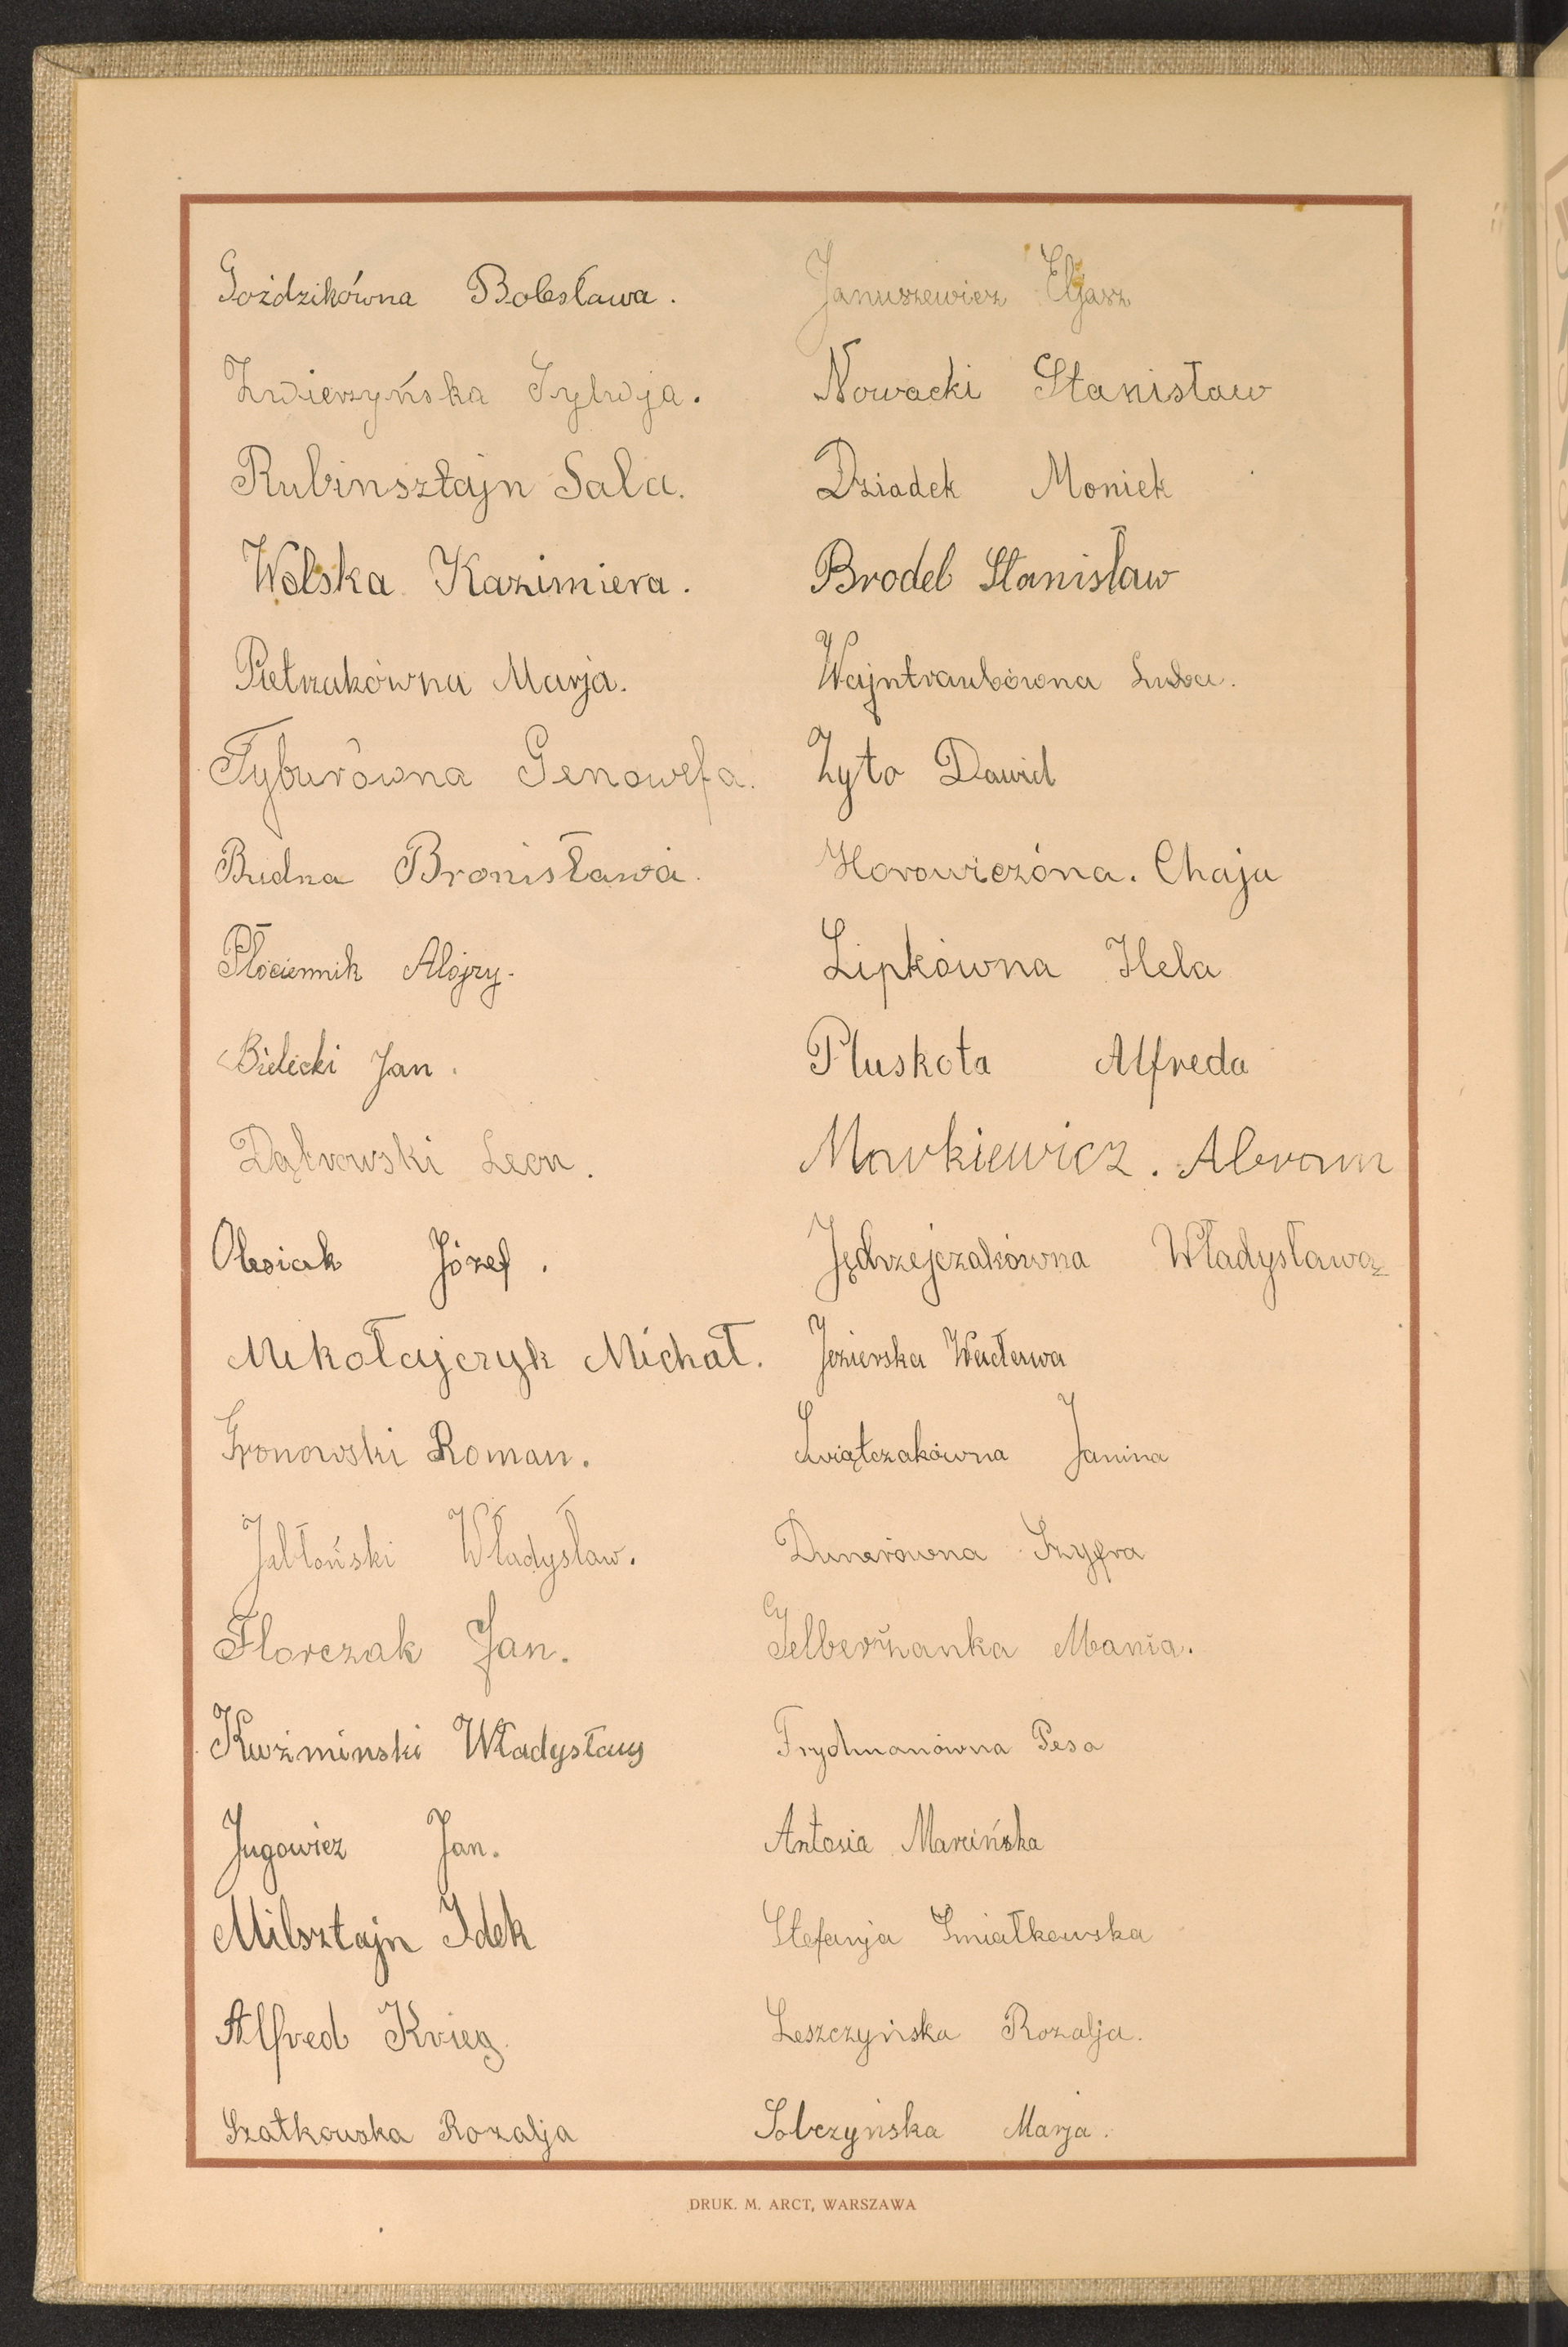 Goździkówna Bolesława.
Zwierzyńska Sylwja.
Rubinsztajn Sala.
Wolska Kazimiera.
Pietrzakówna Marja.
Tyburówna Genowefa.
Budna Bronisława.
Płóciennik Alojzy.
Bielecki Jan.
Dąbrowski Leon.
Olesiak Józef.
Mikołajczyk Michał.
Gronowski Roman.
Jabłoński Władysław.
Florczak Jan.
Kuźminski Władysław
Jugowicz Jan.
Milsztajn Idek
Alfred Krieg.
Szatkowska Rozalja
Januszewicz Eljasz
Nowacki Stanisław
Dziadek Moniek
Brodel Stanisław
Wajntraubówna Luba.
Zyto Dawid
Horowiczóna. Chaja
Lipkówna Hela
Pluskota Alfreda
Markiewicz. Abram
Jędrzejczakówna Władysława
Jezierska Wacława
Świątczakówna Janina
Dunerówna Szyfra
Gelberżanka Mania.
Frydmanówna Pesa
Antosia Marcińska
Stefanja Śmiałkowska
Leszczyńska Rozalja.
Sobczyńska Marja.
DRUK. M. ARCT, WARSZAWA